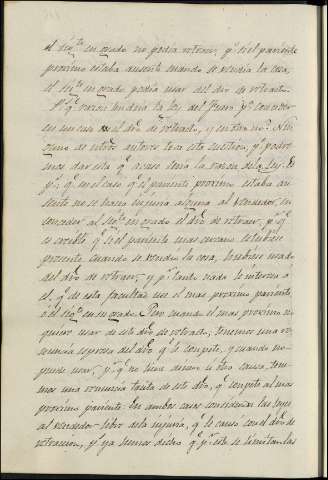 el sig.te en grado no podia retraer, p.o si el pariente
proximo estaba ausente cuando se vendia la cosa,
el sig.te en grado podia usar del dro de retracto.
P.r q.e razon tendria la ley del Fuero p.a conceder
en un caso el dro de retracto, y en otro no?
de estos autores toca esta cuestion, y podre
mos dar esta q.e acaso seria la razon de la Ley. Es
p.r q.e en el caso q.e el pariente proximo estaba au
sente no se hacia injuria alguna al vendedor, en
conceder al sig.te en grado el dro de retraer, p.r q.e
es creible q.e si el pariente mas cercano estubiese
presente cuando se vendia la cosa, hubiese usado
del dro de retraer, y p.r tanto nada le interesa a
el q.e de esta facultad use el mas proximo pariente,
o el sig.te en grado. Pero cuando el mas proximo no
quiere usar de este dro de retracto, tenemos una re
nuncia espresa del dro q.e le compete, y cuando no
puede usar, p.r q.e no tiene dinero u otra causa, tene
mos una renuncia tacita de este dro, q.e compete al mas
proximo pariente. En ambos casos consideran las leyes
al vendedor libre de la injuria, q.e le causó con el dro de
retraccion, y ya hemos dicho q.e p.r esto se limitan las